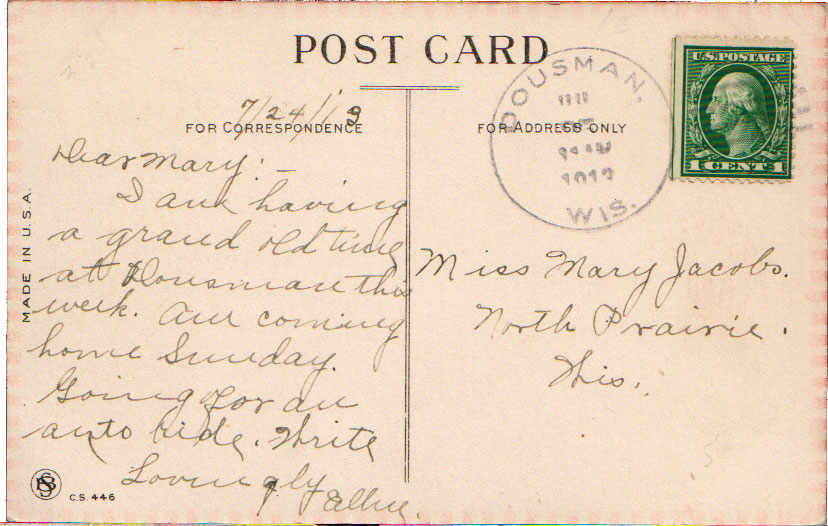 POST CARD
7/24/13
FOR CORRESPONDENCE
FOR ADDRESS ONLY
DOUSMAN,
WIS.
U.S. POSTAGE
1 CENT 1
Dear Mary:
I am having
a grand old time
at Dousman this
week. Am coming
home Sunday.
Going for an
auto ride. Write
Lovingly
Miss Mary Jacobs.
North Prairie.
Wis.
MADE IN U.S.A.
C.S. 446